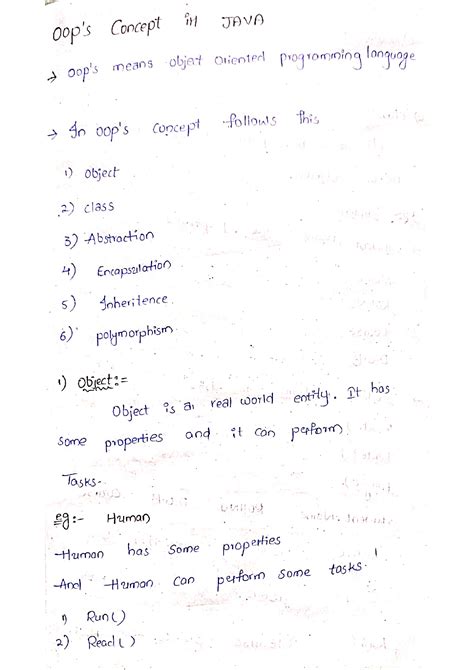 OOP's Concept in JAVA
→ OOP's means objet oriented programming language
→ In OOP's Concept follows this
1) object
2) class
3) Abstraction
4) Encapsulation
5) Inheritence.
6) polymorphism
1) Object:=
Object is a real world entity. It has
some properties and it can perform
Tasks.
eg:- Human
Human has some properties
And Human can perform some tasks.
1) Run()
2) Read()